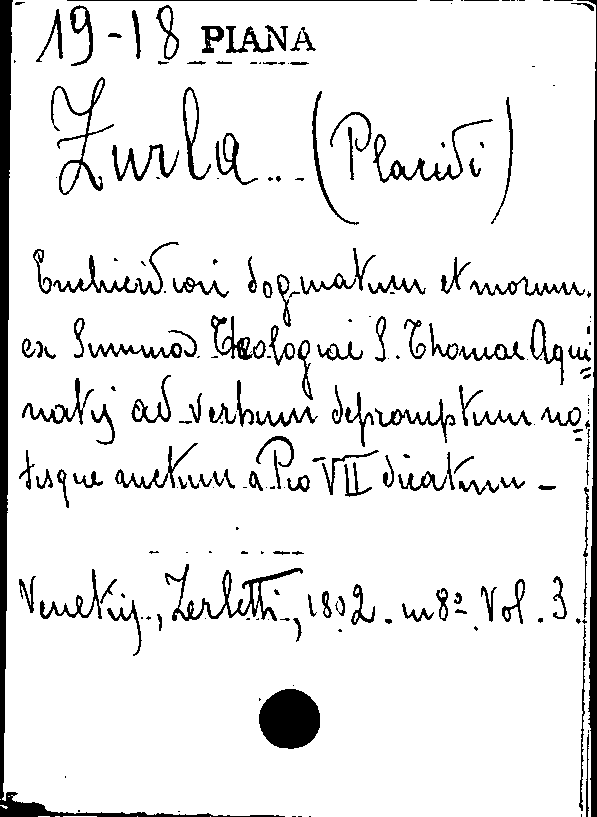 19-18 PIANA
Zurla (Placidi)
Enchiridion dogmatum et morum
ex Summa Theologiae S. Thomae Aqui=
natis ad verbum depromptum no=
tisque auctum a Pio VII dicatum -
Venetiis, Zerletti, 1802. in 8º. Vol. 3.